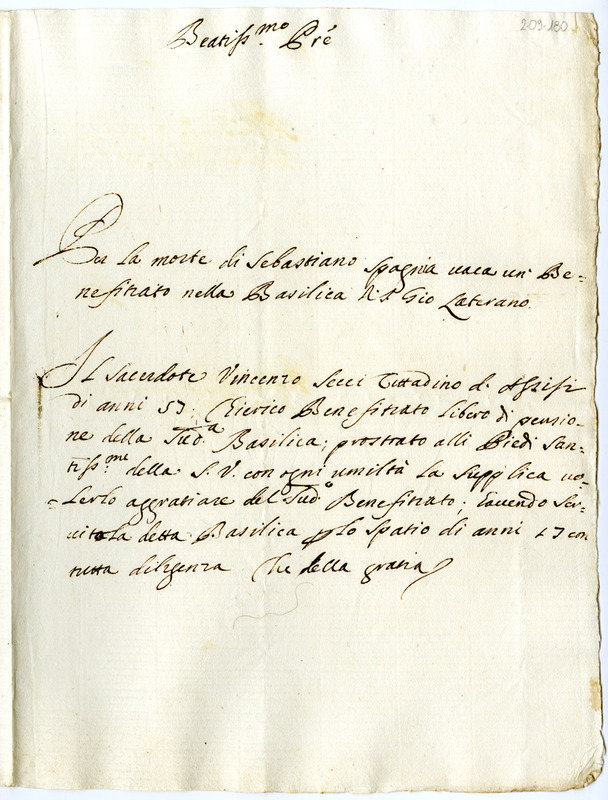 209-180
Beatiss.mo Pre
Per la morte di Sebastiano Spagnia vaca un Be=
nefitiato nella Basilica di S. Gio Laterano.
Il Sacerdote Vincenzo Secci Cittadino d'Assisi
di anni 57; Chierico Benefitiato libero di pensio=
ne della Sud.a Basilica; prostrato alli Piedi San=
tiss.mi della S.V. con ogni umiltà la supplica vo=
lerlo aggratiare del Sud.o Benefitiato; havendo ser=
vito la detta Basilica p lo spatio di anni 17 con
tutta diligenza Che della gratia